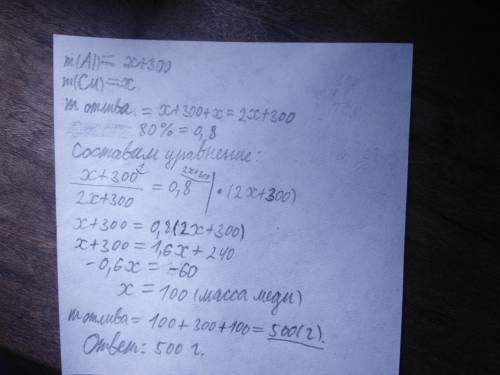 m(Al)= x+300
m(Cu)=x
m отлива = x+300+x=2x+300
80%=0,8
Составим уравнение:
x+300 / 2x+300 = 0,8 | •(2x+300)
x+300=0,8(2x+300)
x+300=1,6x+240
-0,6x=-60
x=100 (масса меди)
m отлива=100+300+100=500(г).
Ответ: 500 г.